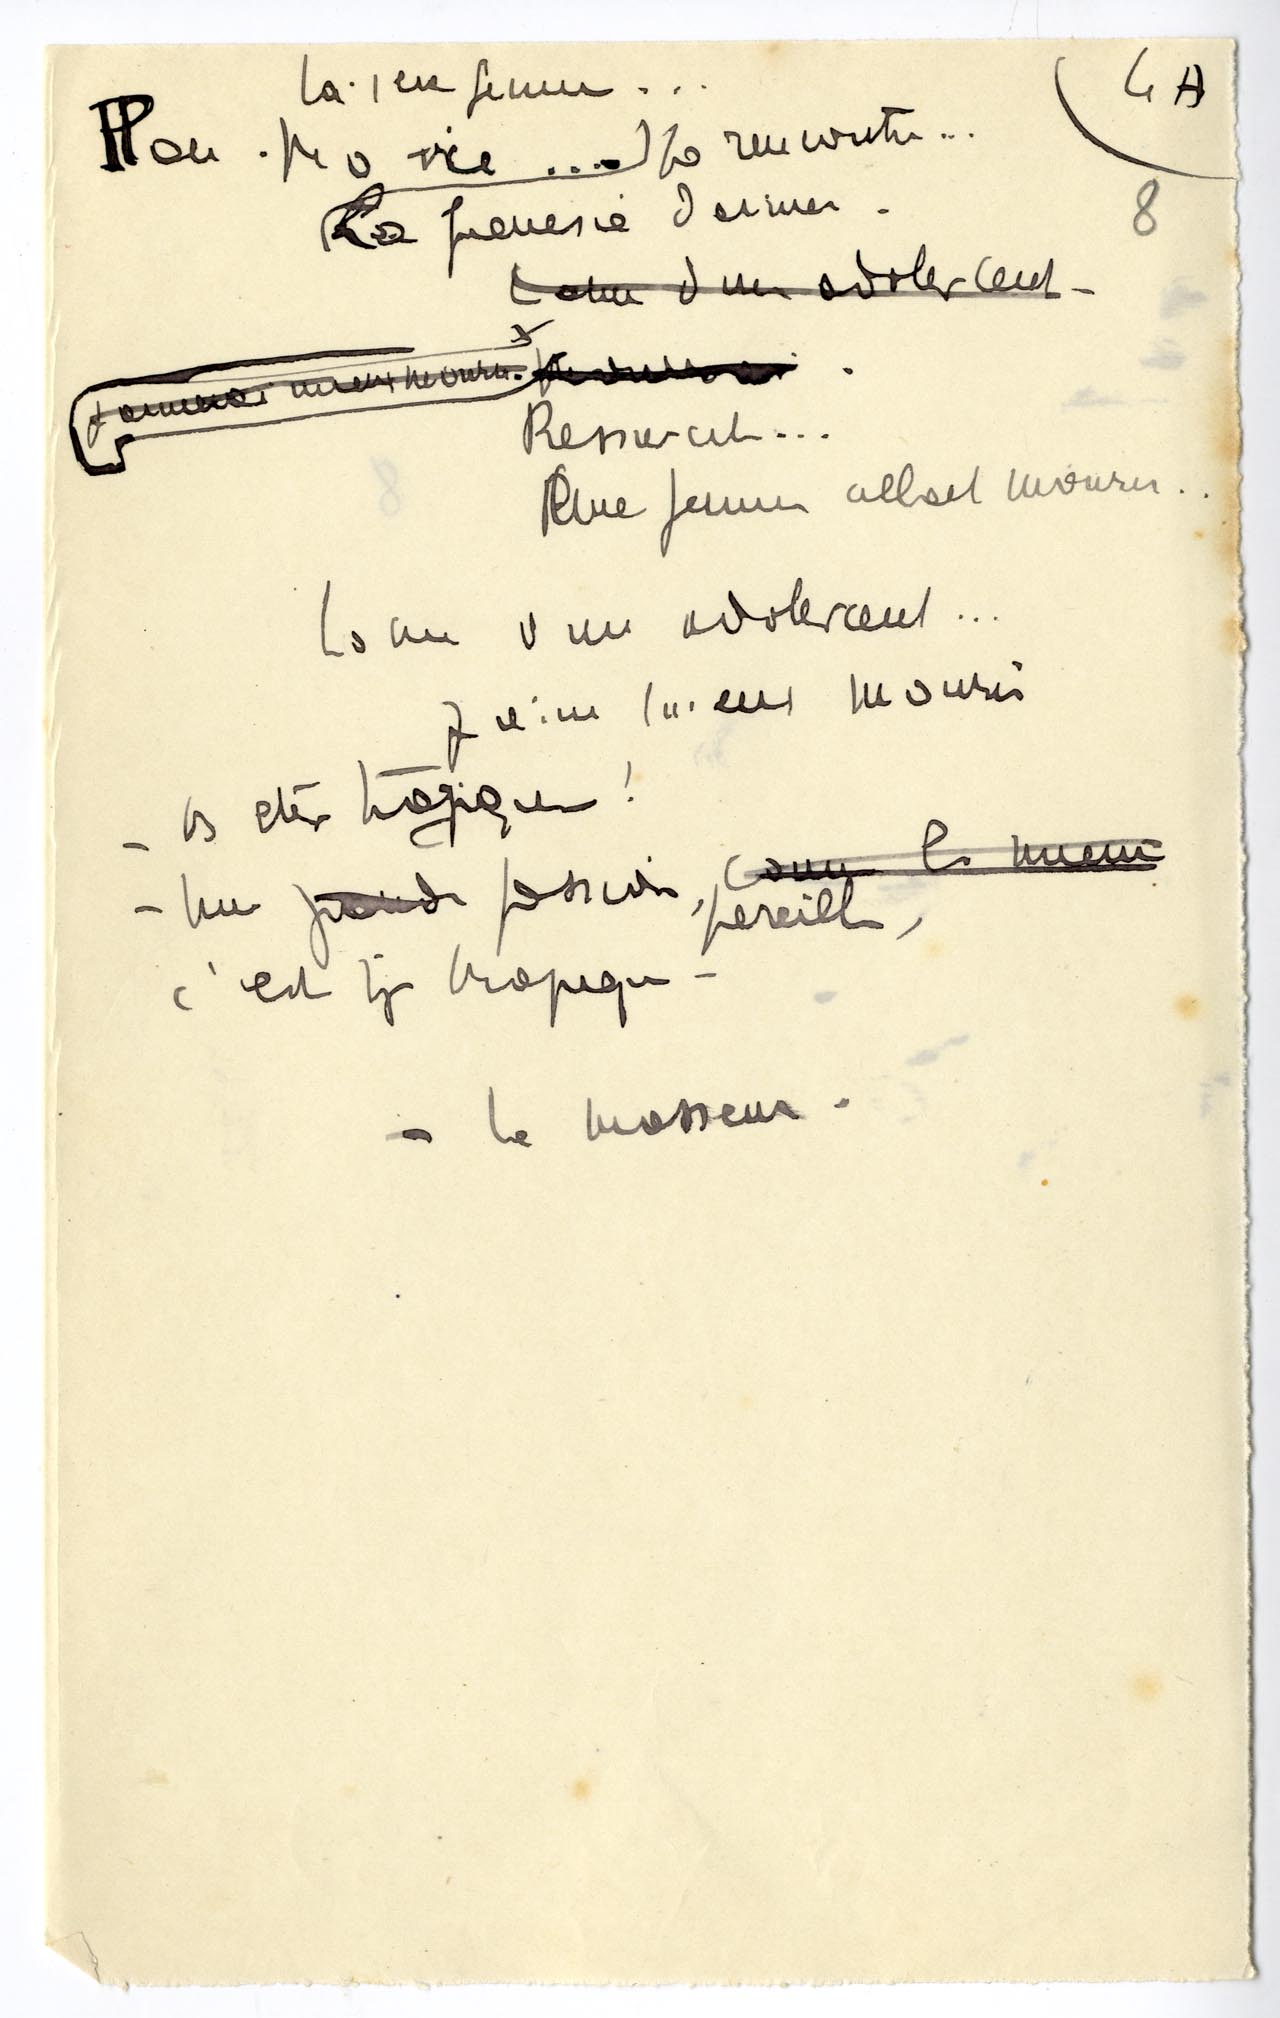 La 1ère femme...
4 A
Ma vie... la rencontre...
8
La frénésie d'aimer.
L'ame d'un adolescent -
J'aimerai mieux mourir.
Ressuscit...
Une femme allait mourir..
L'ame d'un adolescent...
J'aime mieux mourir
- Vs êtes tragique !
- Une grande passion, comme la mienne
pareille,
c'est tjs tragique -
- Le masseur -